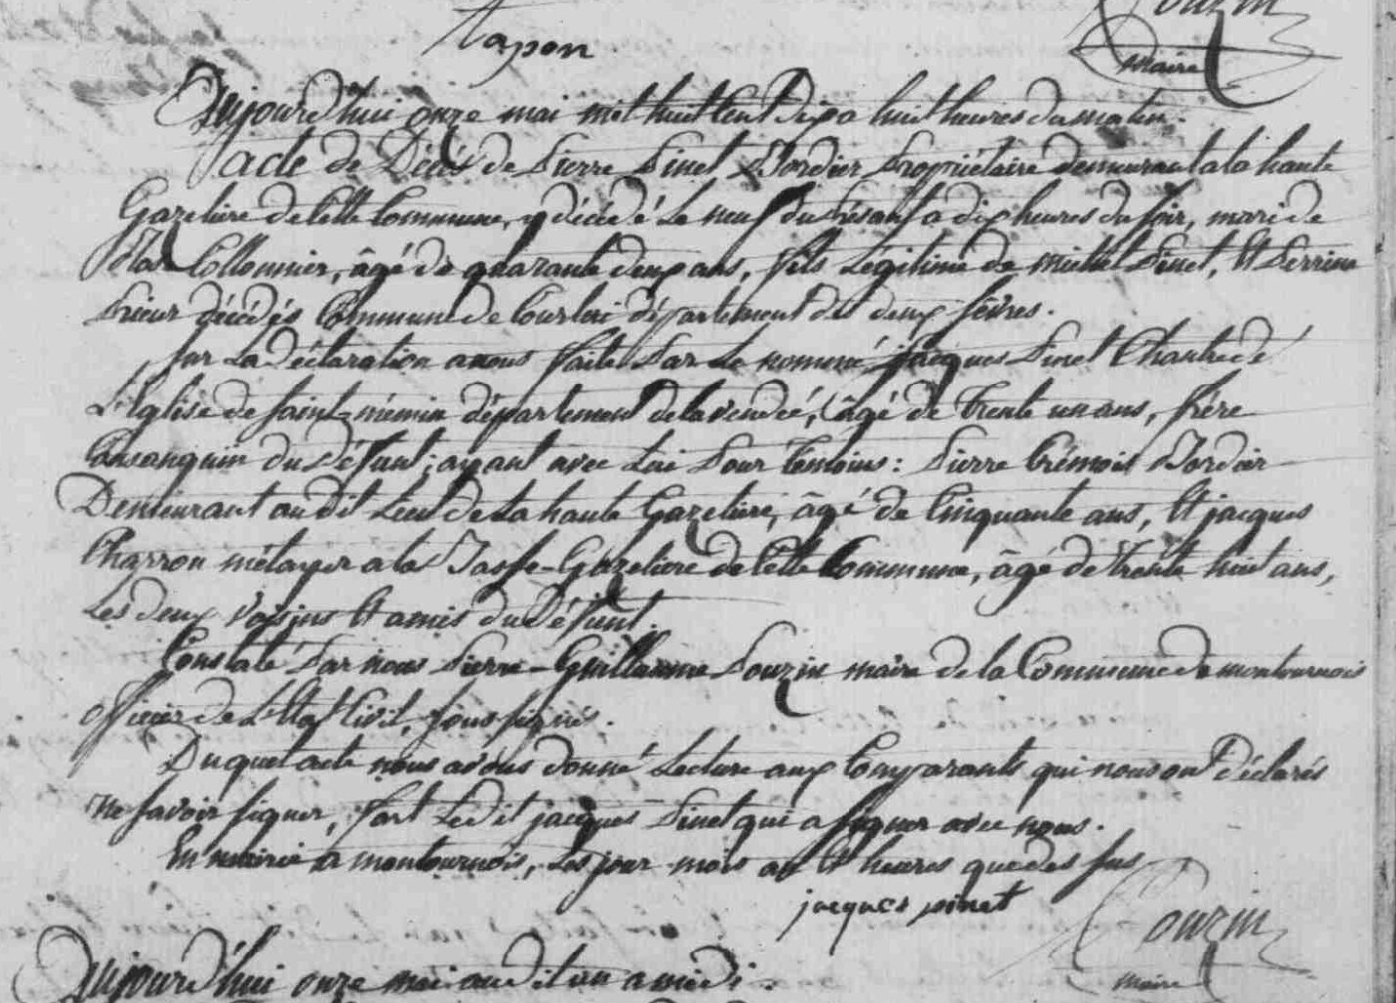 tapon
Pouzin
Maire
Aujourd'hui onze mai mil huit Cent Dix a huit heures du matin.
acte de Décés de Pierre Pinet Bordier Propriétaire demeurant a la haute
Gazeliere de Cette Commune, y décédé Le neuf du Présant a dix heures du soir, mari de
Marie Collonnier, âgé de quarante deux ans, fils Légitime de michel Pinet, Et Perrine
Prieur décédés Commune de Courlai département des deux sévres.
Sur La déclaration a nous faite Par Le nommé jacques Pinet Chantre de
L'Eglise de Saint-mémin département de la vendée, âgé de trente un ans, frére
Consanguin du Défunt; ayant avec Lui Pour temoins: Pierre Crémois Bordier
Demeurant au dit Lieu de La haute Gazeliere, âgé de Cinquante ans, Et jacques
Charron métayer a la Basse-Gazeliere de Cette Commune, âgé de trente huit ans,
Les deux Voisins Et amis du Défunt.
Constaté Par nous Pierre-Guillaume Pouzin maire de la Commune de montournois
officier de L'Etat Civil, sous signé.
Duquel acte nous avons donné Lecture aux Comparants qui nous ont déclarés
ne savoir signer, fort Ledit jacques Pinet qui a signer avec nous.
En mairie a montournois, Les jour mois an Et heures que des sus
jacques pinet
Pouzin
maire
Aujourd'hui onze mai au dit an a midi.